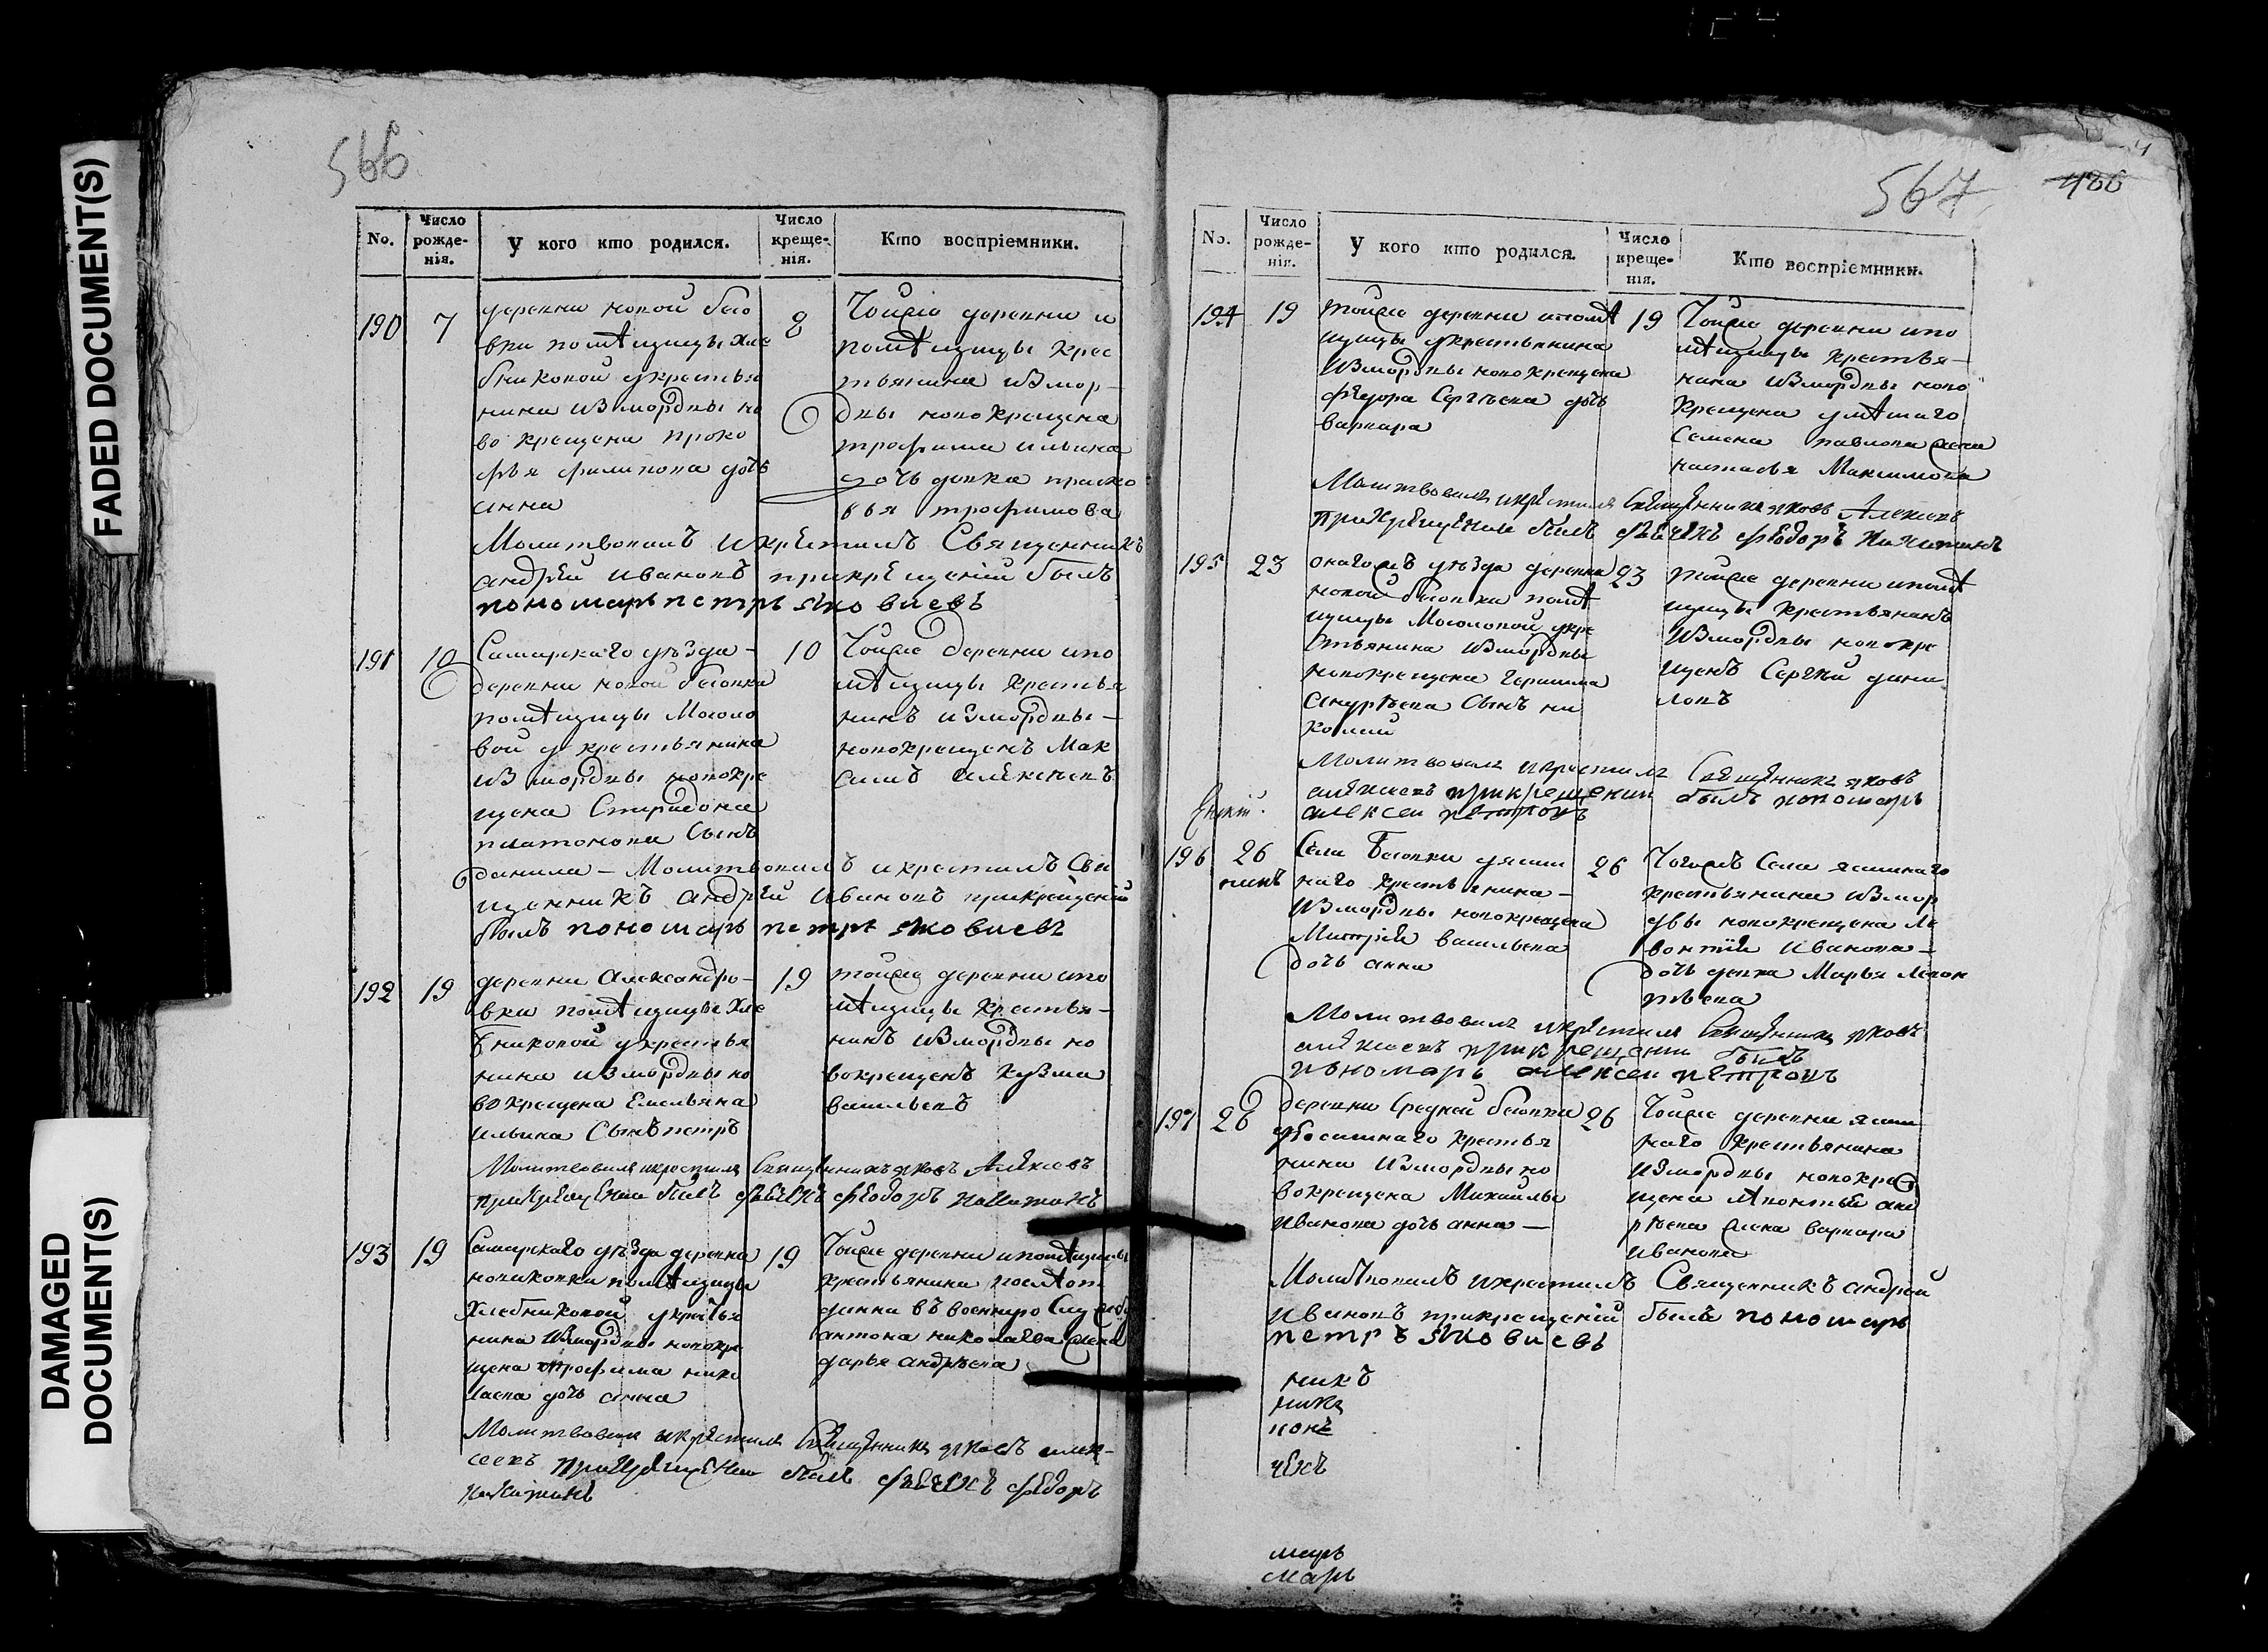 FADED DOCUMENT(S)
DAMAGED
DOCUMENT(S)
566
No.
Число
рожде-
нія.
У кого кто родился.
Число
креще-
нія.
Кто воспріемники.
190
7
деревни новой бѣо
вки помѣщицы Хле
бниковой укрестья
нина измордвы но
во крещена проко
фья филипова дочь
анна
8
Тойже деревни и
помѣщицы крес
тьянина измор-
двы новокрещена
трофима ильина
дочь девка праско
вья трофимова
Молитвовалъ икрестилъ Священникъ
андрей ивановъ прикрещеніи былъ
пономарь петръ яковлевъ
191
10
Самарскаго уѣзда-
деревни новой
помѣщицы Мосоло
вой укрестьянина
из мордвы новокре
щена Спиридона
платонова Сынъ
10
Тойже деревни ипо
мѣщицы крестья
нинъ измордвы-
новокрещенъ Мак
симъ алексеевъ
данила - Молитвовалъ икрестилъ Свя
щенникъ андрей ивановъ прикрещеніи
былъ пономарь петръ яковлевъ
192
19
деревни Александро-
вки помѣщицы Хле
бниковой укрестья
нина измордвы но
вокрещена Емельяна
ильина Сынъ петръ
19
тойже деревни ипо
мѣщицы крестья-
нинъ измордвы но
вокрещенъ Кузма
васильевъ
Молитвовалъ икрестилъ Священникъ яковъ Алексеевъ
прикрещении былъ федоръ никитинъ
193
19
Самарскаго уѣзда деревни
помѣщицы
Хлебниковой укрестья
нина измордвы новокре
щена трофима нико
лаева дочь анна
19
Тойже деревни ипомѣщицы
крестьянина
данна въ военную Службу
антона николаева жена
дарья андрѣева
Молитвовалъ икрестилъ Священникъ яковъ алек-
сеевъ прикрещении былъ федоръ
никитинъ
567
486
No.
Число
рожде-
нія.
У кого кто родился.
Число
креще-
нія.
Кто воспріемники.
194
19
тойже деревни ипомѣ
щицы укрестьянина
Измордвы новокрещена
федора Сергѣева дочь
варвара
19
Тойже деревни ипо
мѣщицы крестья-
нина измордвы ново
крещена умѣршаго
Семена павлова жена
настасья Максимова
Молитвовалъ икрестилъ Священникъ яковъ Алексеевъ
прикрещении былъ федоръ Никитинъ
195
23
онагожъ уѣзда деревни
новой помѣ
щицы Мосоловой укре
стьянина измордвы
новокрещена герасима
Сынъ ни
колай
23
тойже деревни ипомѣ
щицы крестьянинъ
Измордвы новокре
щенъ Сергей дани
ловъ
Молитвовалъ икрестилъ Священникъ яковъ
алексеевъ прикрещении былъ пономарь
алексеи петровъ
196
26
Села уясаш
наго крестьянина-
Измордвы новокрещена
Митрия васильева
дочь анна
26
Тогожъ Села ясашнаго
крестьянина измор
двы новокрещена ле
вонтия иванова-
дочь девка Марья Левон
тьева
Молитвовалъ икрестилъ Священникъ яковъ
алексеевъ прикрещении былъ
пономарь алексеи петровъ
197
26
деревни Средней
уясашнаго крестья
нина измордвы но
вокрещена Михайлы
иванова дочь анна -
26
Тойже деревни ясаш
наго крестьянина
измордвы новокре
щена лѣвонтья анд
рѣева жена варвара
иванова
Молитвовалъ икрестилъ Священникъ андрей
ивановъ прикрещеніи былъ пономарь
петръ яковлевъ
никъ
никъ
новъ
чекъ
марь
марь